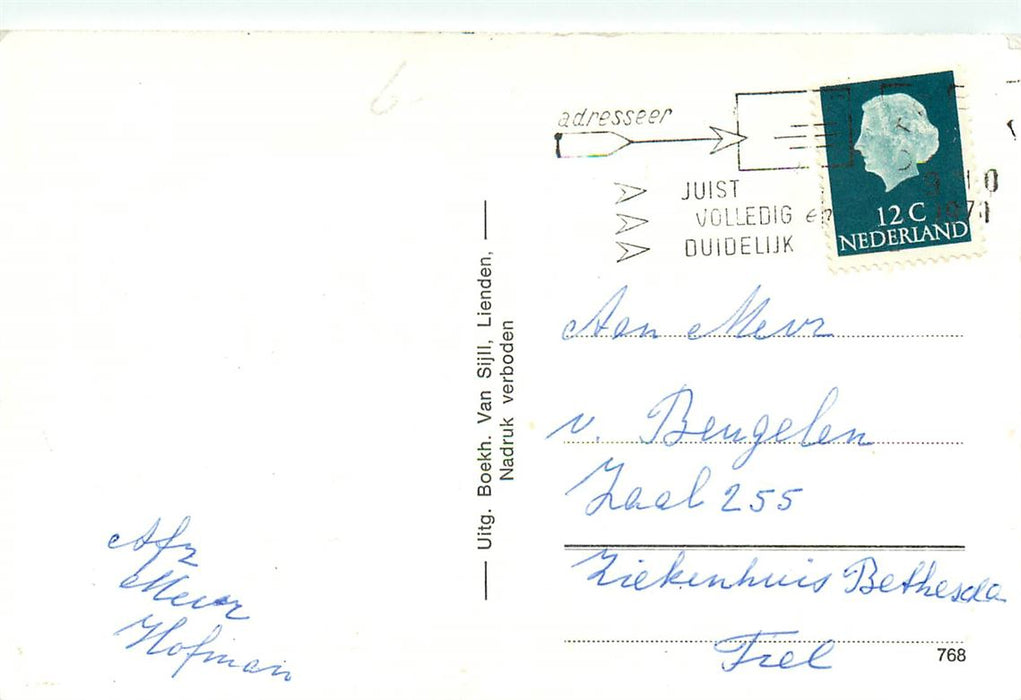 6
adresseer
JUIST
VOLLEDIG en
DUIDELIJK
12 C
NEDERLAND
Aan Mevr
v. Beugelen
Zaal 255
Ziekenhuis Bethesda
Tiel
768
Uitg. Boekh. Van Sijll, Lienden,
Nadruk verboden
Afz
Mevr
Hofman